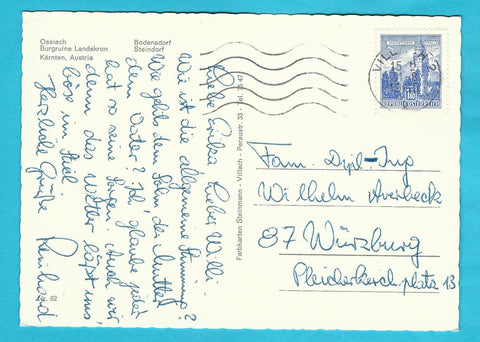 Ossiach
Burgruine Landskron
Kärnten, Austria
Bodensdorf
Steindorf
Liebe Erika, lieber Willi
Wie ist die allgemeine Stimmung?
Wie gehts dem Sohn, der Mutter,
dem Vater? Ich glaube jeder
hat so seine Sorgen. Auch wir
denn das Wetter läßt uns
bös im Stich.
Herzliche Grüße
Reinhard
82
Farbkarten Steinmann - Villach - Peraustr. 33 - Tel. 76 47
VILLA
15
REPUBLIK ÖSTERREICH
Fam. Dipl-Ing
Wilhelm Averbeck
87 Würzburg
Pleicherkirchplatz 13